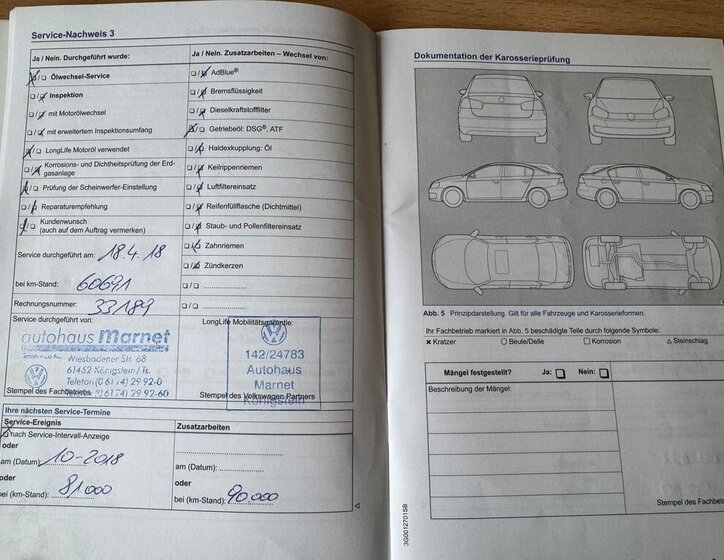 Service-Nachweis 3
Ja / Nein. Durchgeführt wurde:
☒/☐ Ölwechsel-Service
☐/☒ Inspektion
☐/☒ mit Motorölwechsel
☐/☒ mit erweitertem Inspektionsumfang
☒/☐ LongLife Motoröl verwendet
☐/☒ Korrosions- und Dichtheitsprüfung der Erd-
gasanlage
☒/☐ Prüfung der Scheinwerfer-Einstellung
☐/☒ Reparaturempfehlung
☒/☐ Kundenwunsch
(auch auf dem Auftrag vermerken)
Service durchgeführt am: 18.4.18
bei km-Stand: 60691
Rechnungsnummer: 33189
Service durchgeführt von:
autohaus Marnet
Wiesbadener Str. 68
61462 Königstein / Ts.
Telefon (0 61 74) 29 92-0
Telefax (0 61 74) 29 92-60
Stempel des Fachbetriebs
Ja / Nein. Zusatzarbeiten – Wechsel von:
☐/☒ AdBlue®
☐/☒ Bremsflüssigkeit
☐/☒ Dieselkraftstofffilter
☒/☐ Getriebeöl: DSG®, ATF
☐/☒ Haldexkupplung: Öl
☐/☒ Keilrippenriemen
☐/☒ Luftfiltereinsatz
☐/☒ Reifenfüllflasche (Dichtmittel)
☐/☒ Staub- und Pollenfiltereinsatz
☐/☒ Zahnriemen
☐/☒ Zündkerzen
☐/☐ ....................
☐/☐ ....................
LongLife Mobilitätsgarantie:
142/24783
Autohaus
Marnet
Königstein
Stempel des Volkswagen Partners
Ihre nächsten Service-Termine
Service-Ereignis
☒ nach Service-Intervall-Anzeige
oder
am (Datum): 10-2018
oder
bei (km-Stand): 81000
Zusatzarbeiten
am (Datum): ....................
oder
bei (km-Stand): 90.000
Dokumentation der Karosserieprüfung
Abb. 5 Prinzipdarstellung. Gilt für alle Fahrzeuge und Karosserieformen.
Ihr Fachbetrieb markiert in Abb. 5 beschädigte Teile durch folgende Symbole:
✕ Kratzer ○ Beule/Delle □ Korrosion △ Steinschlag
Mängel festgestellt? Ja: ☐ Nein: ☐
Beschreibung der Mängel:
Stempel des Fachbetriebs
3G0012701SB